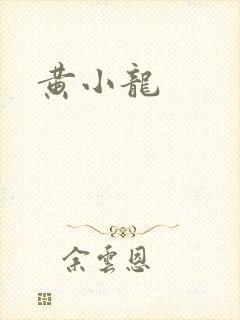 黄小龍
余雲恩